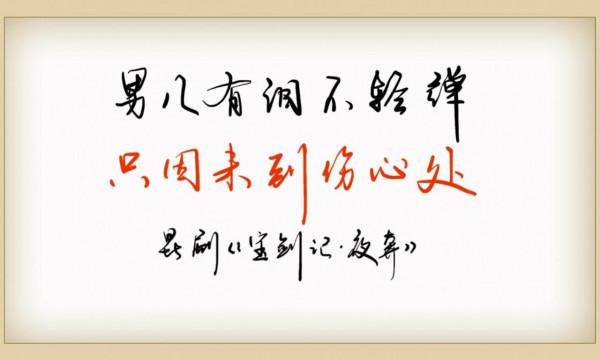 男儿有泪不轻弹
只因未到伤心处
昆剧《宝剑记·夜奔》